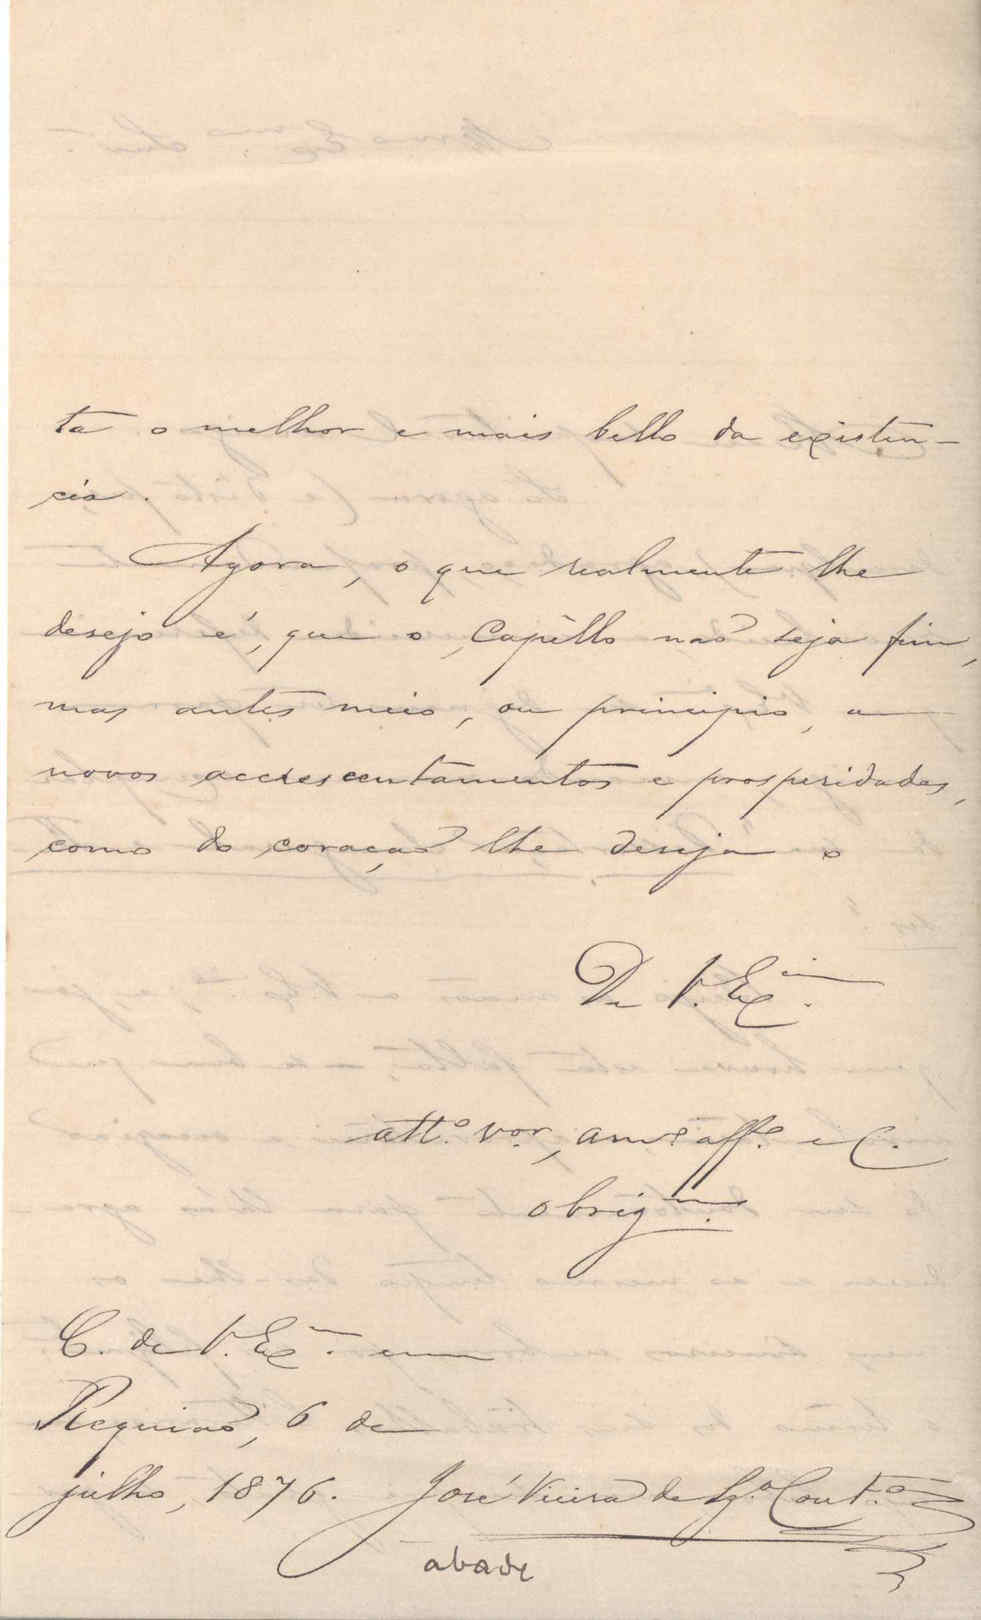 ta o melhor e mais bello da existen-
cia.
Agora, o que realmente lhe
desejo é, que o Capêllo não seja fim,
mas antes meio, ou principio, a
novos accrescentamentos e prosperidades,
como do coração lhe deseja o
De V. Exª.
attº. vor., amº affº. e C.
obrigmº.
C. de V. Exª. em
Requião, 6 de
julho, 1876. José Vieira de Sz.ª Cout.º
abade